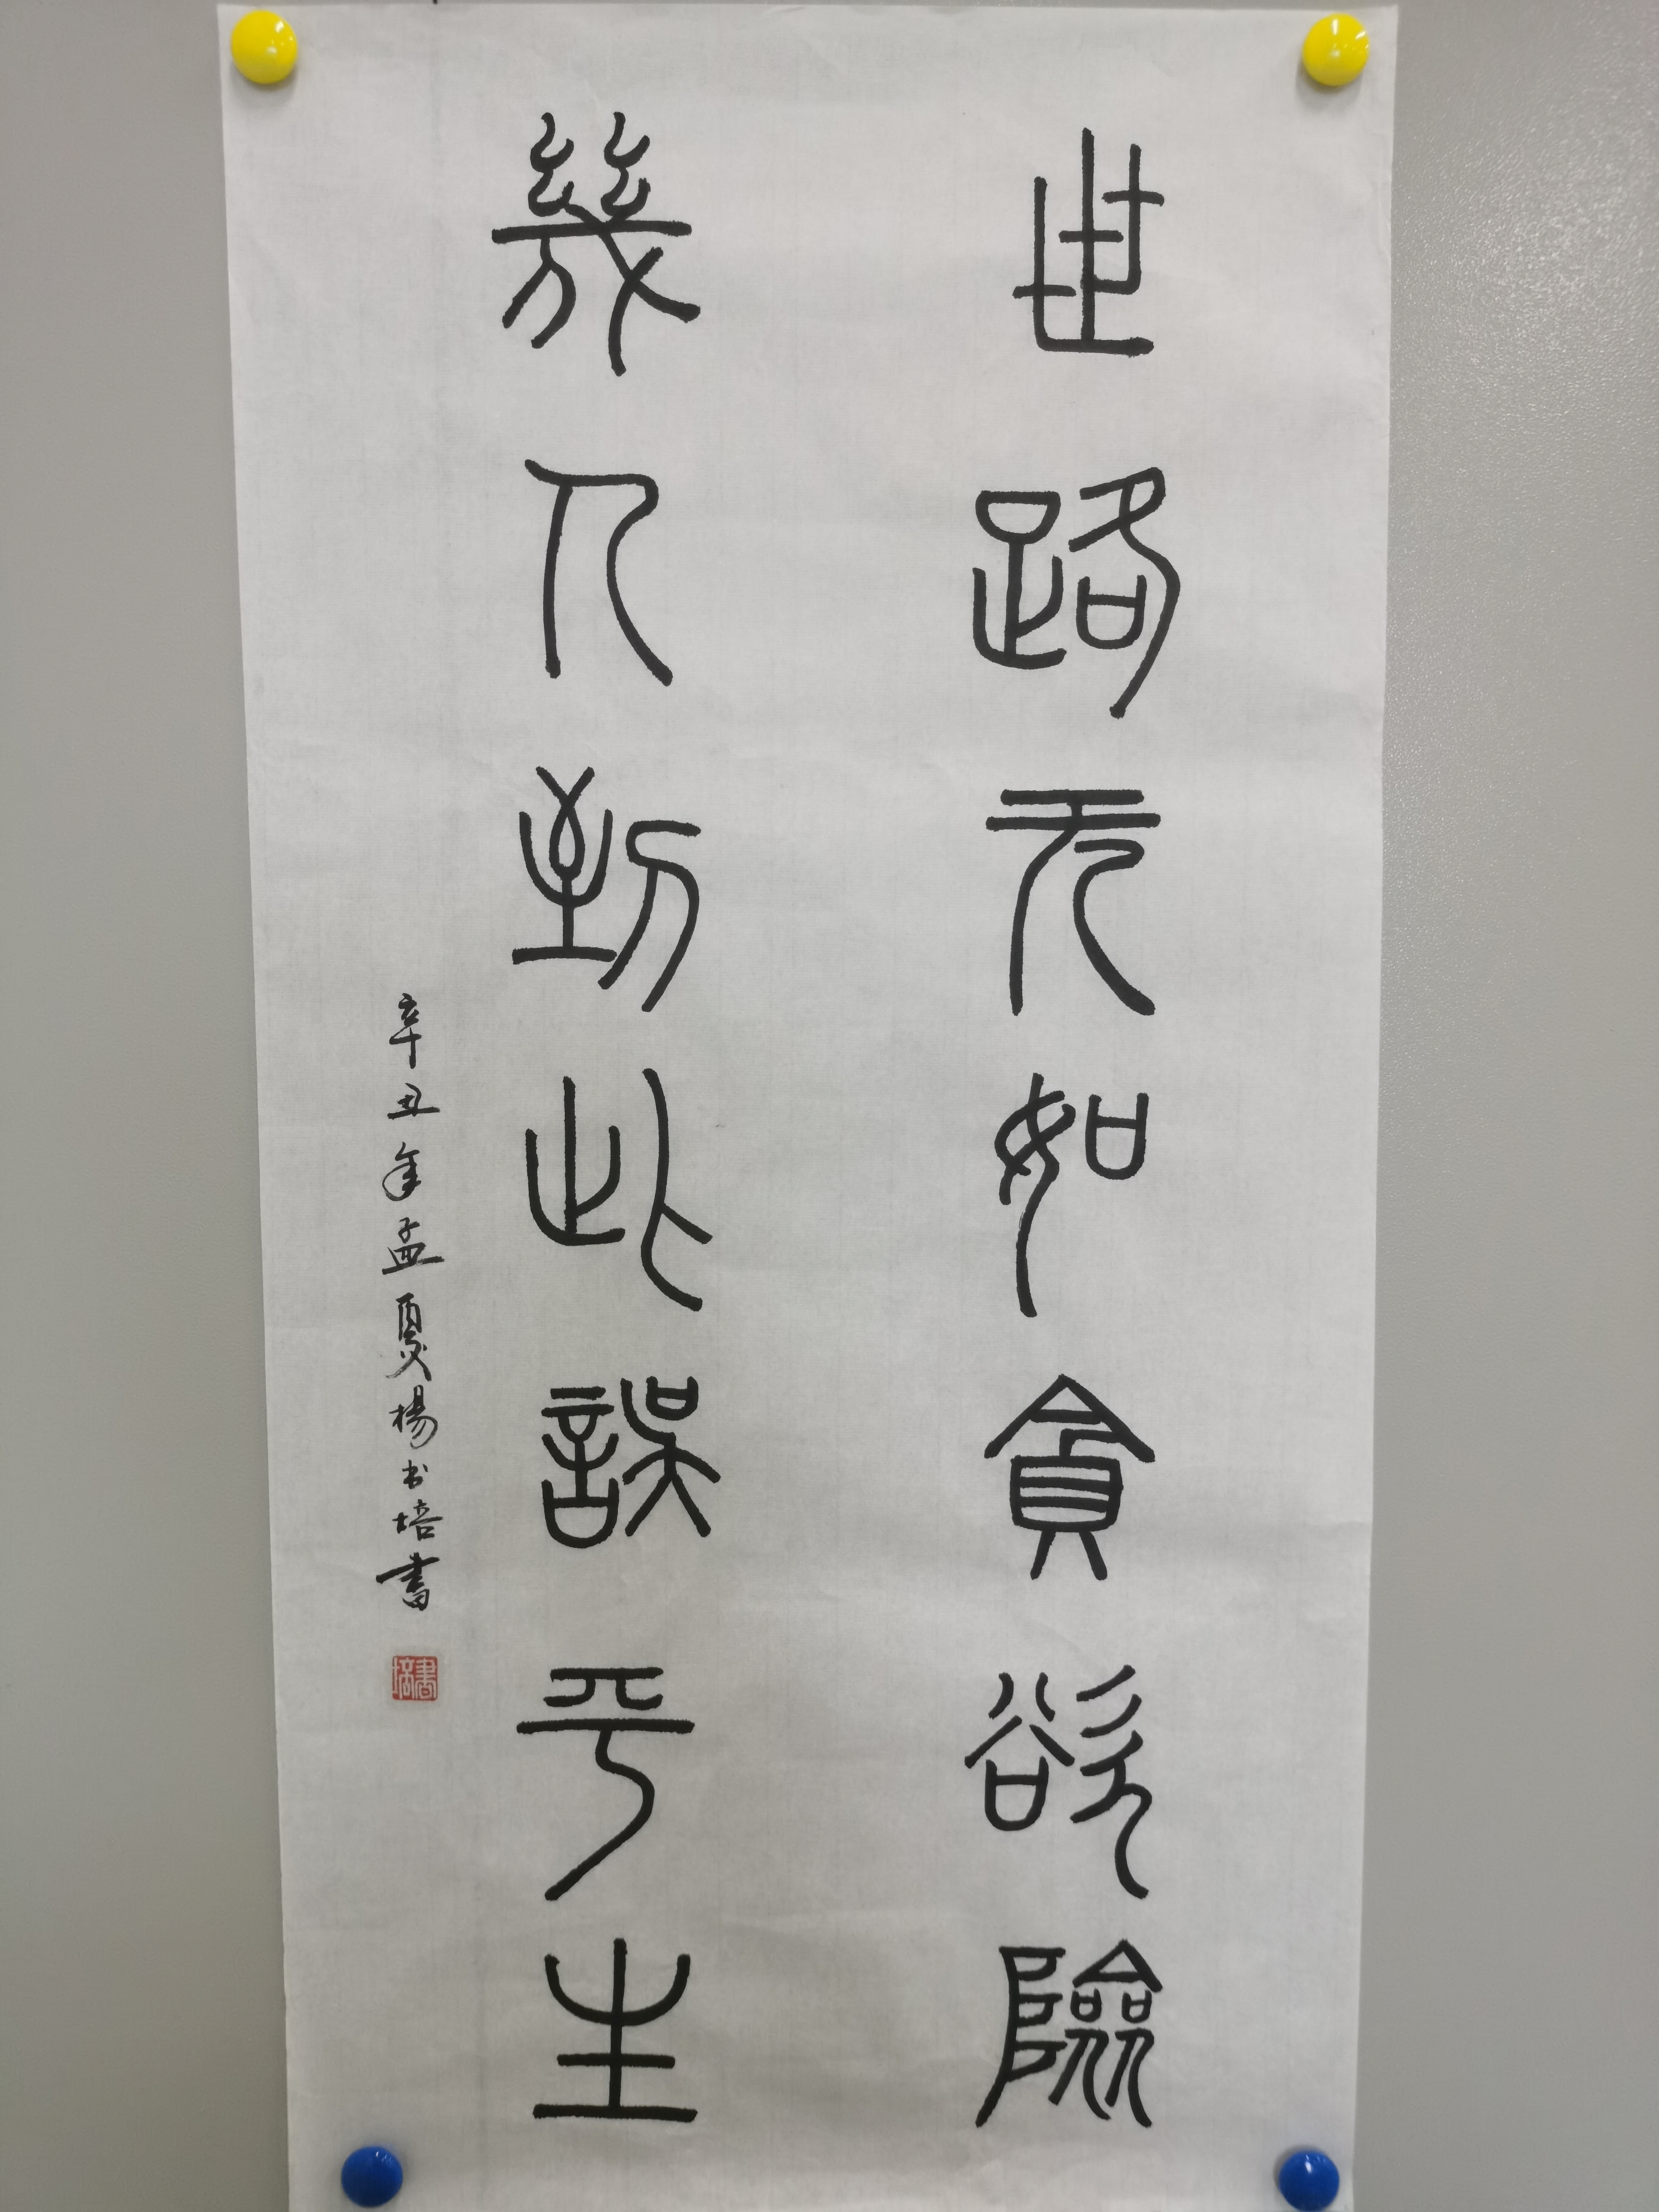 世路无如貪欲險
幾人到此誤平生
辛丑年孟夏楊书培書
書培